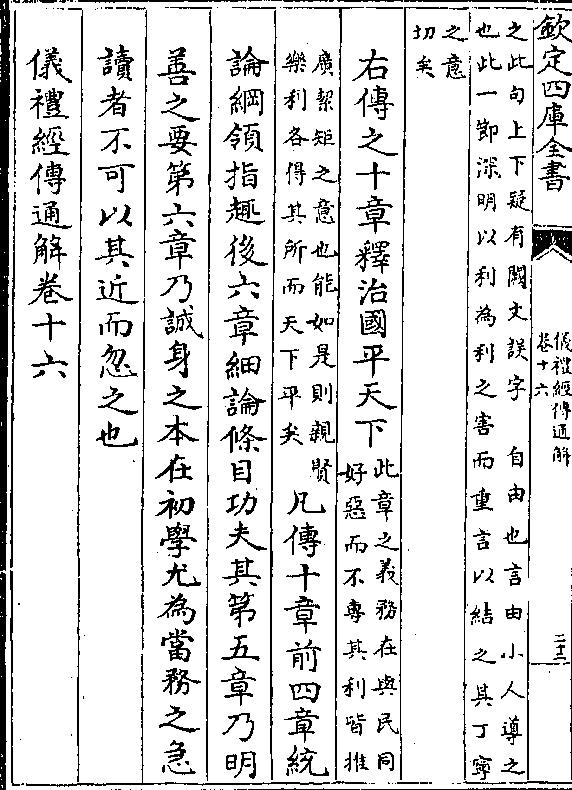 欽定四庫全書
儀禮經傳通解
卷十六
二十二
之此句上下疑有闕文誤字　自由也言由小人導之
也此一節深明以利為利之害而重言以結之其丁寧
之意
切矣
右傳之十章釋治國平天下
此章之義務在與民同
好惡而不專其利皆推
廣絜矩之意也能如是則親賢
樂利各得其所而天下平矣
凡傳十章前四章統
論綱領指趣後六章細論條目功夫其第五章乃明
善之要第六章乃誠身之本在初學尤為當務之急
讀者不可以其近而忽之也
儀禮經傳通解卷十六